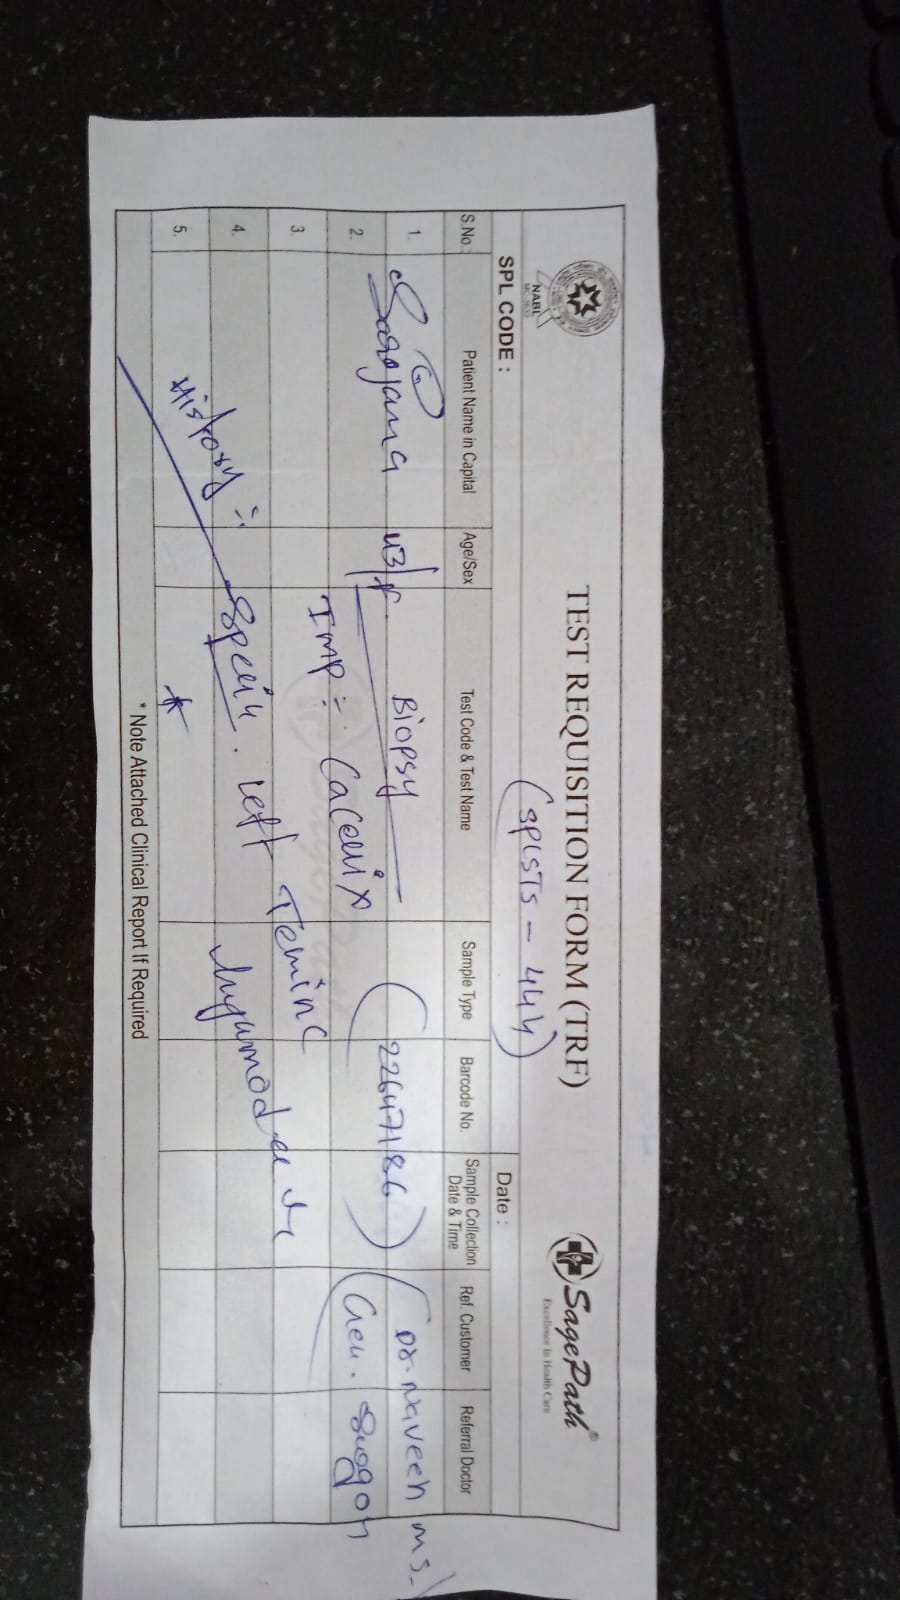 NABL
TEST REQUISITION FORM (TRF)
SagePath®
Excellence In Health Care
(SPLSTS - 444)
SPL CODE :
Date :
S.No. Patient Name in Capital Age/Sex Test Code & Test Name Sample Type Barcode No. Sample Collection Date & Time Ref. Customer Referral Doctor
1. Sarojama 43/F. Biopsy (22647186) (Dr. Naveen MS.)
2. Imp :- (Gen.
3.
4. History :- left
5.
* Note Attached Clinical Report If Required